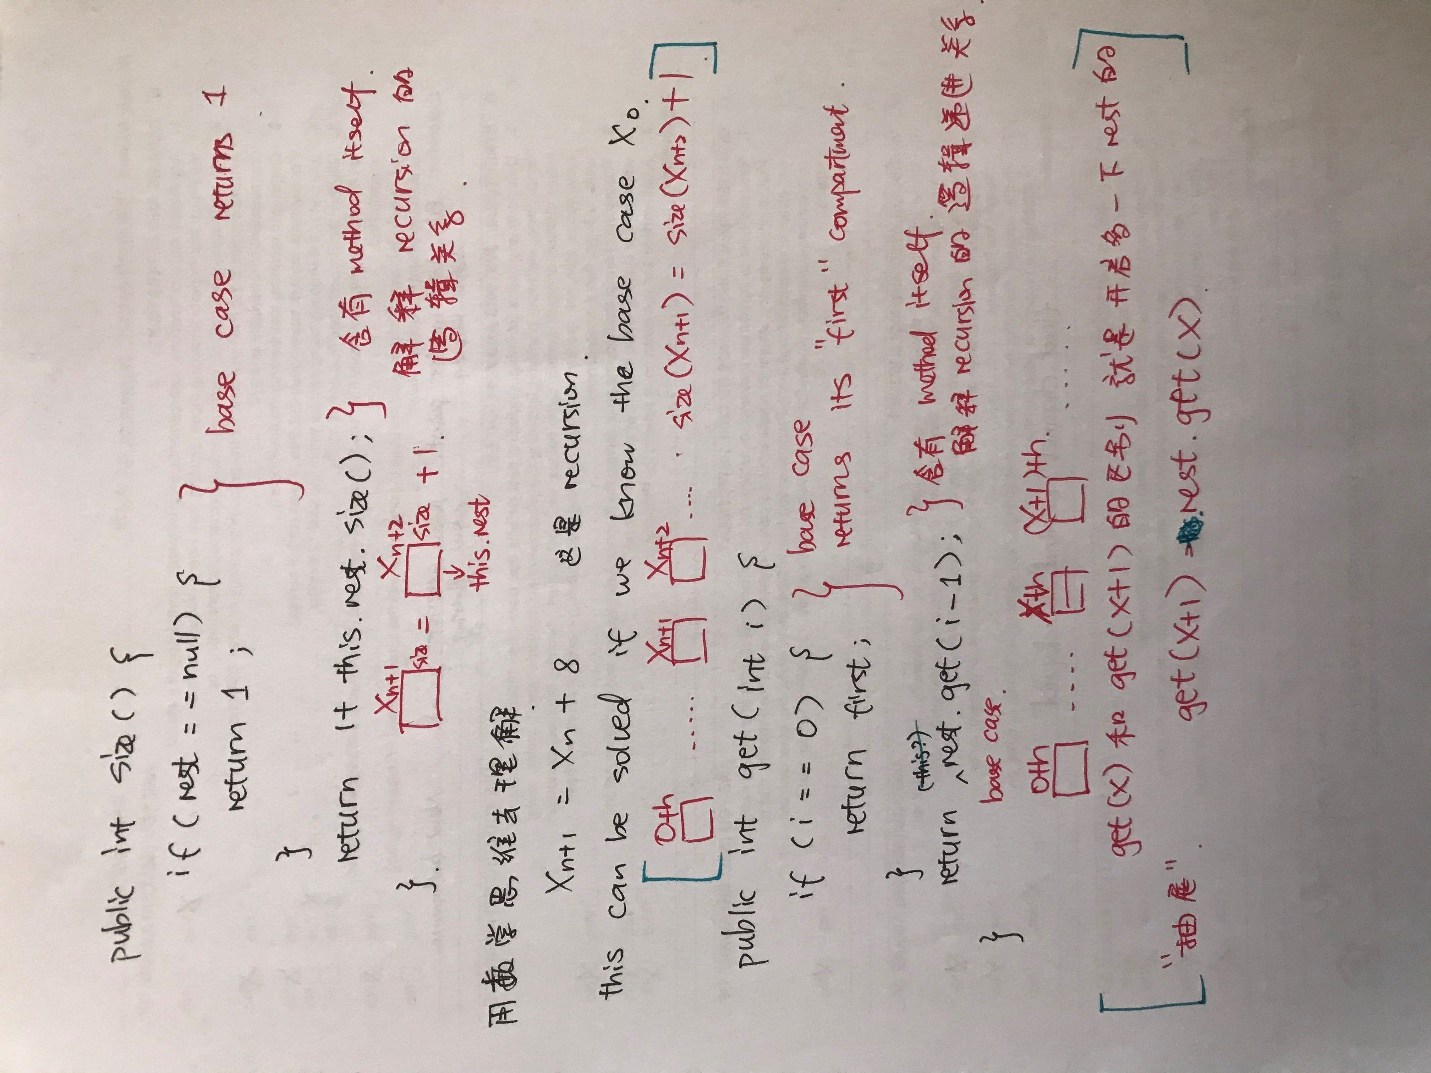 public int size() {
if (rest == null) {
return 1 ;
}
} base case returns 1
return 1+ this.rest.size(); } 含有 method itself.
解释 recursion 的
逻辑关系.
Xn+1 Xn+2
size = size +1.
↓
this.rest
}.
用数学思维去理解.
Xn+1 = Xn + 8 这是 recursion.
this can be solved if we know the base case X0.
[ 0th ...... Xn+1 Xn+2 ..... size(Xn+1) = size(Xn+2)+1 ]
public int get(int i) {
if (i == 0) {
return first;
}
} base case
returns its "first" compartment.
return (this?) rest.get(i-1); } 含有 method itself.
解释 recursion 的逻辑递进关系.
}
base case.
0th .... Xth (X+1)th. ......
[ get(X) 和 get(X+1) 的区别 就是再多一下 rest 的
"抽屉". get(X+1) = rest.get(X). ]